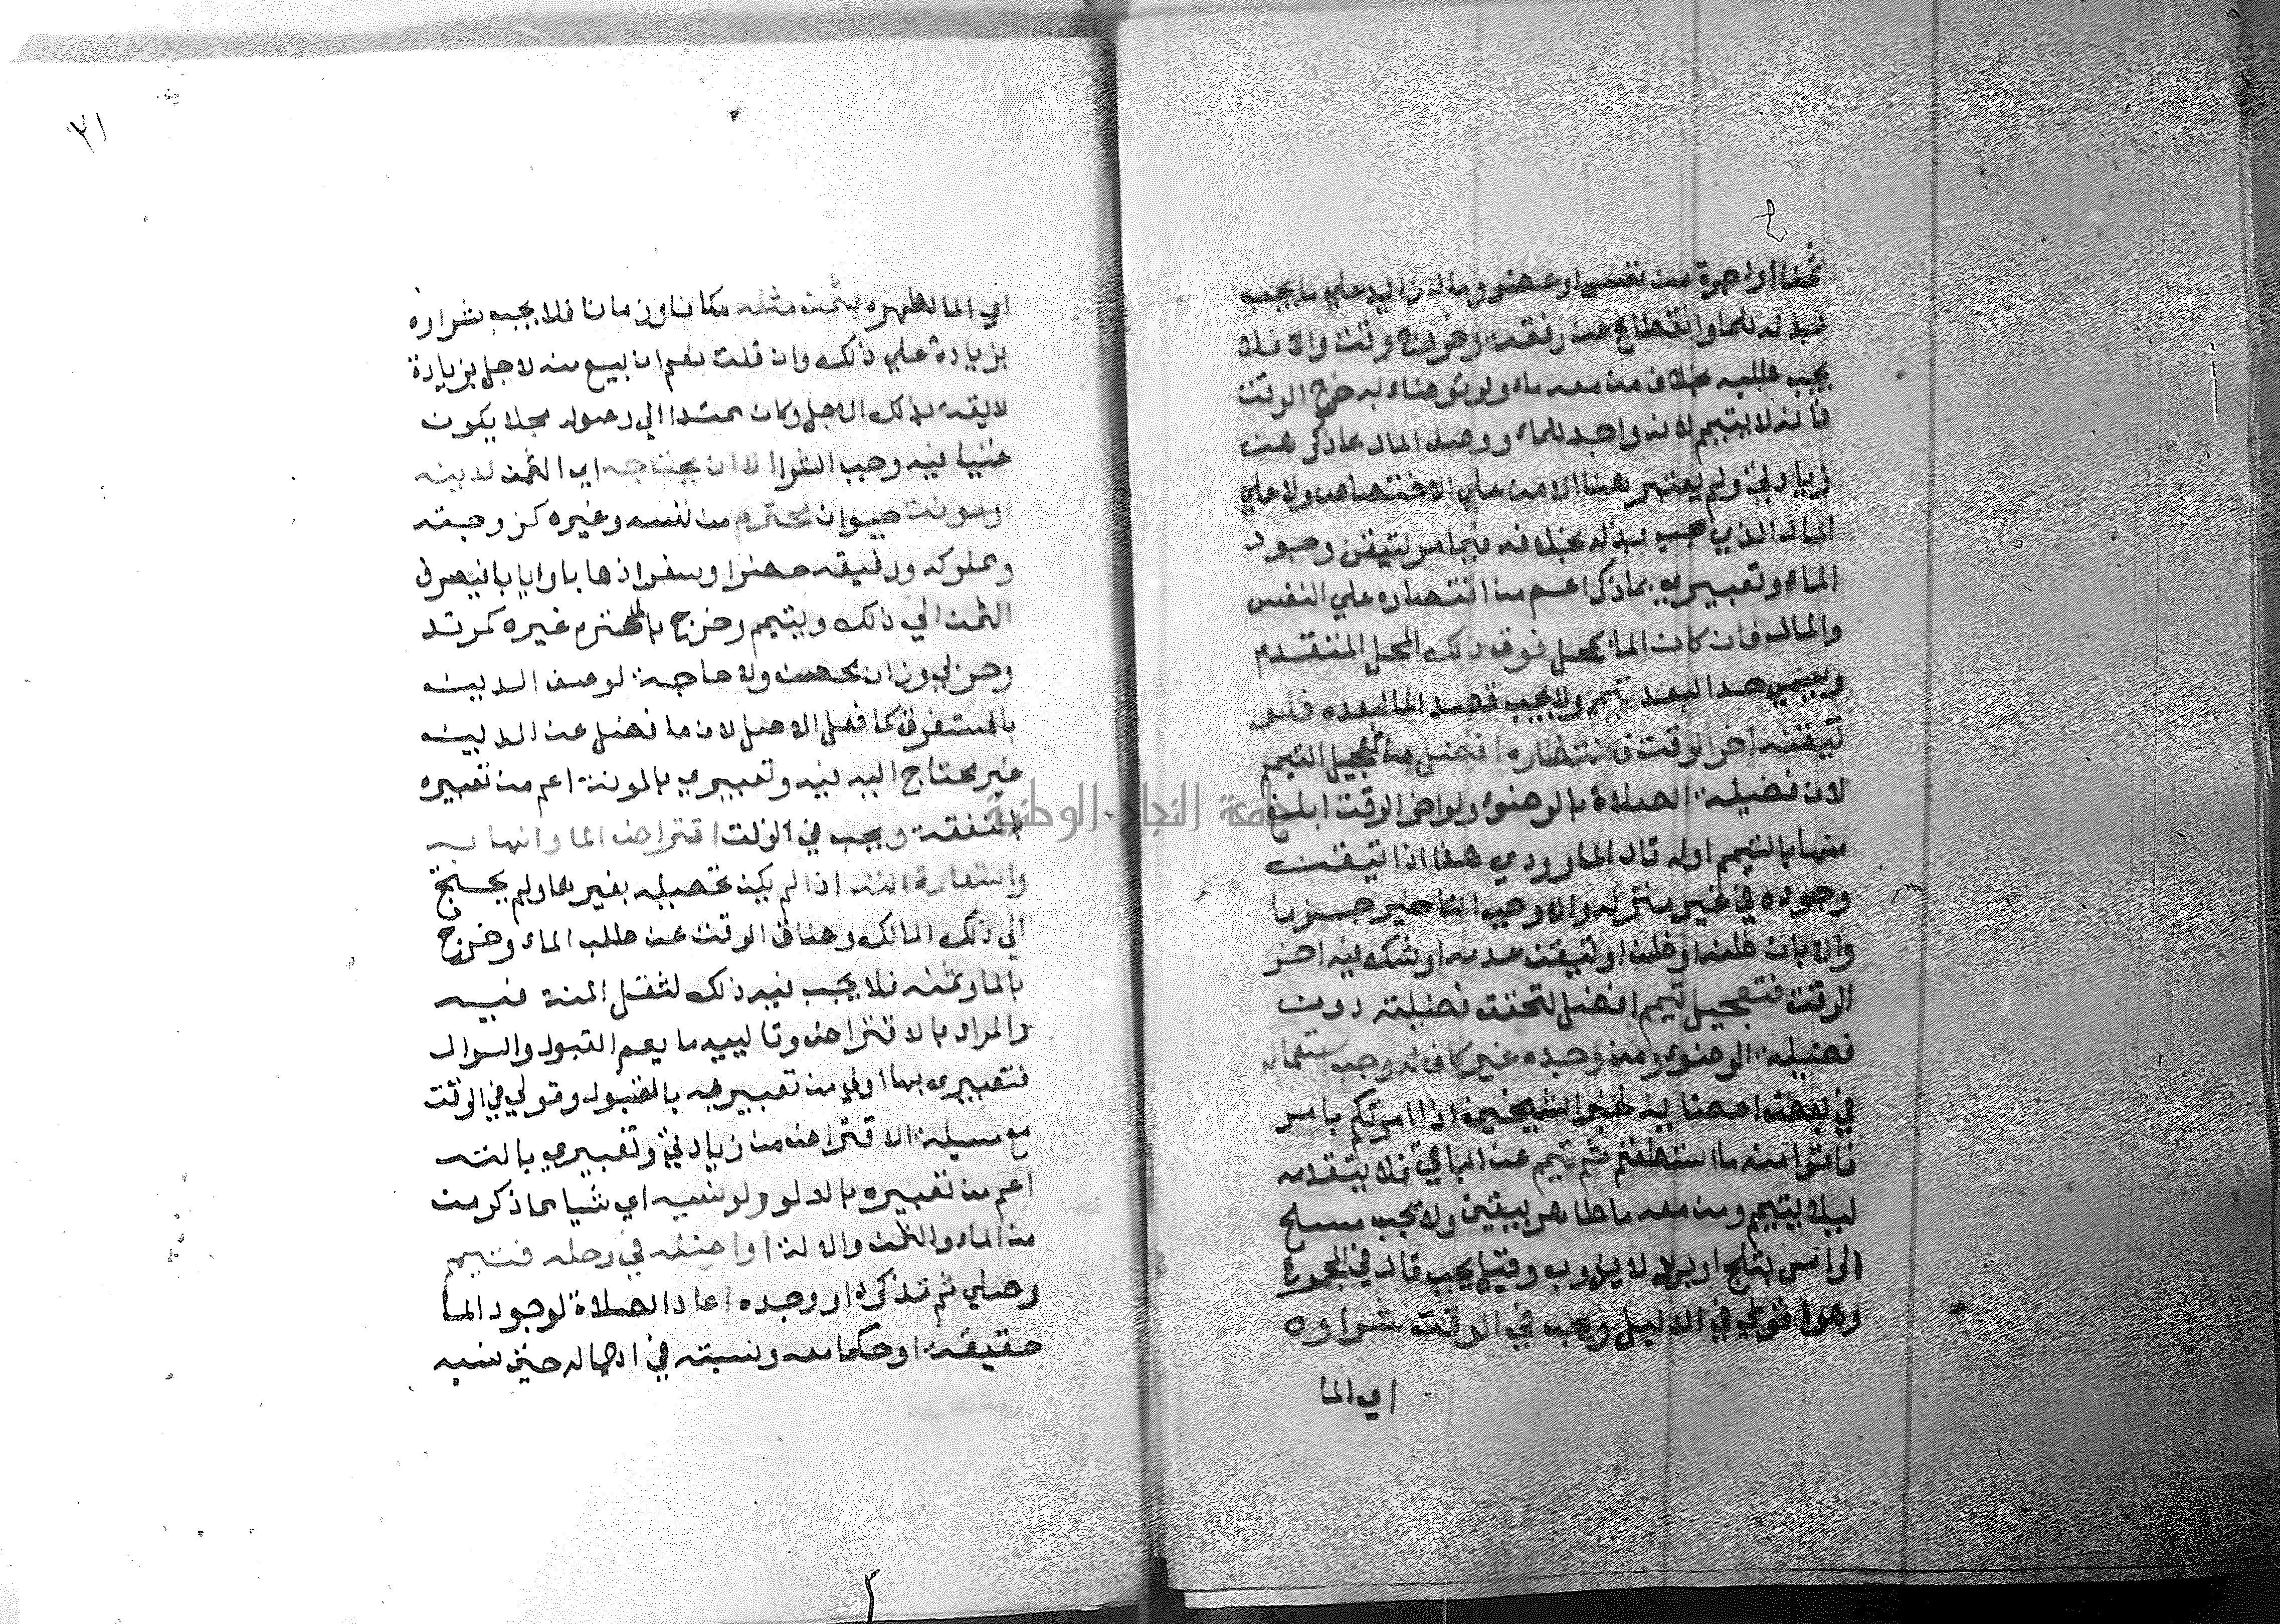 ثمنا او اجرة من نفس او عضو ومال زايد علي ما يجب
بذله للما وانقطاع عن رفقة وخروج وقت والا فلا
يجب طلبه بخلاف من معه ماء ولو توضاء به خرج الوقت
فانه لا يتيمم لانه واجد للماء ووصف المال بما ذكر من
زيادتي ولم يعتبر هنا الامن علي الاختصاص ولا علي
المال الذي يجب بذله بخلافه فيما مر لتيقن وجود
الماء وتعبيري بما ذكر اعم من اقتصاره علي النفس
والمال فان كان الماء بمحل فوق ذلك المحل المتقدم
ويسمي حد البعد تيمم ولا يجب قصد الما لبعده فلو
تيقنه اخر الوقت فانتظاره افضل من تعجيل التيمم
لان فضيلة الصلاة بالوضوء ولو اخر الوقت ابلغ
منها بالتيمم اوله قال الماوردي هذا اذا تيقن
وجوده في غير منزله والا وجب التاخير جزما
والا بان ظنه او ظن او تيقن عدمه او شك فيه اخر
الوقت فتعجيل تيمم افضل لتحقق فضيلته دون
فضيلة الوضوء ومن وجده غير كاف له وجب استعماله
في بعض اعضايه لخبر الشيخين اذا امرتكم بامر
فاتوا منه ما استطعتم ثم تيمم عن الباقي فلا يتقدمه
ليلا يتيمم ومن معه ما طاهر بيقين ولا يجب مسح
الراس بثلج او برد لا يذوب وقيل يجب قال في المجموع
وهو اقوي في الدليل ويجب في الوقت شراوه
اي الما
٢١
اي الما لطهره بثمن مثله مكانا وزمانا فلا يجب شراوه
بزيادة علي ذلك وان قلت نعم ان بيع منه لاجل بزيادة
لايقة بذلك الاجل وكان ممتدا الي وصوله محلا يكون
غنيا فيه وجب الشرا الا ان يحتاجه اي الثمن لدينه
او مونة حيوان محترم من نفسه وغيره كزوجته
ومملوكه ورفيقه حضرا وسفرا ذهابا وايابا فيصرف
الثمن الي ذلك ويتيمم وخرج بالمحترم غيره كمرتد
وحربي وزان محصن ولا حاجة لوصف الدين
بالمستغرق كما فعل الاصل لان ما فضل عن الدين
غير محتاج اليه فيه وتعبيري بالمونة اعم من تعبيره
بالنفقة ويجب في الوقت اقتراض الما واتهابه
واستعارة الته اذا لم يمكن تحصيله بغيرها ولم يحتج
الي ذلك المالك وضاق الوقت عن طلب الماء وخرج
بالما وثمنه فلا يجب فيه ذلك لثقل المنة فيه
والمراد بالاقتراض وتالييه ما يعم القبول والسوال
فتعبيري بها اولي من تعبيره به بالقبول وقولي في الوقت
مع مسيلة الاقتراض من زيادتي وتعبيري بالته
اعم من تعبيره بالدلو ولو نسيه اي شيا مما ذكر من
من الماء والثمن والالة او اضله في رحله فتيمم
وصلي ثم تذكره او وجده اعاد الصلاة لوجود الما
حقيقة او حكما معه ونسبته في اهماله حتي نسيه
جامعة النجاح الوطنية